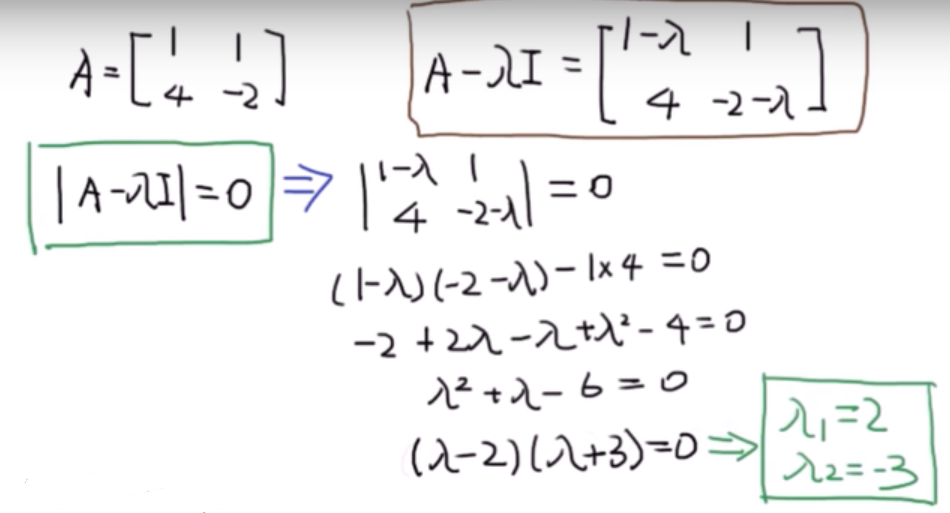 A = [1 1; 4 -2]
A - λI = [1-λ 1; 4 -2-λ]
|A - λI| = 0 ⇒ |1-λ 1; 4 -2-λ| = 0
(1-λ)(-2-λ) - 1×4 = 0
-2 + 2λ - λ + λ² - 4 = 0
λ² + λ - 6 = 0
(λ-2)(λ+3) = 0 ⇒
λ₁ = 2
λ₂ = -3